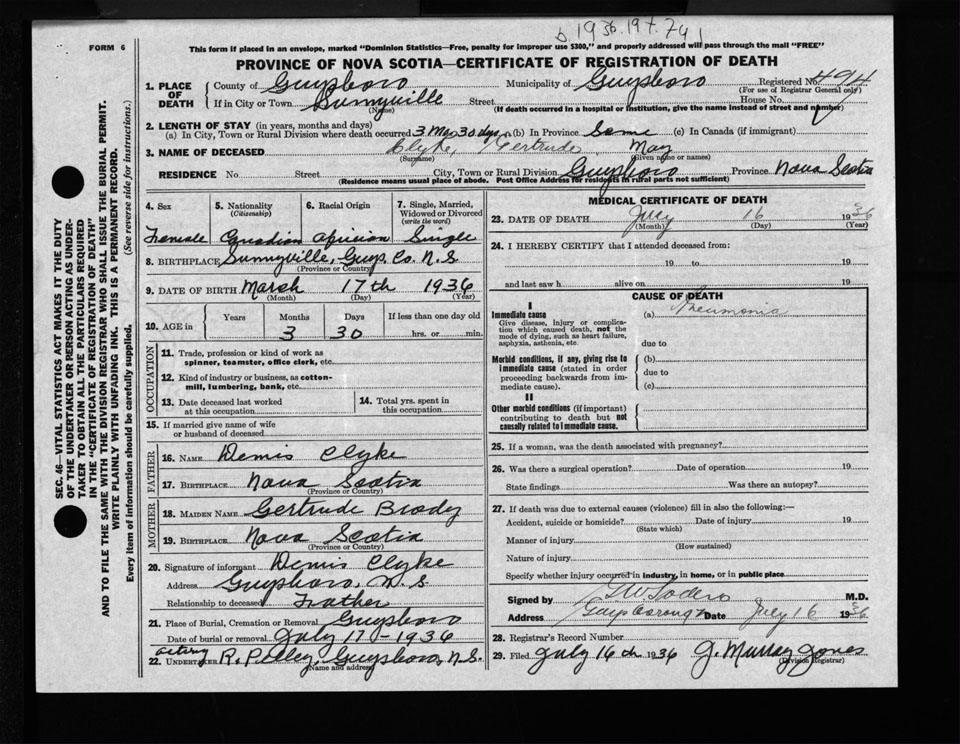 1936.19
FORM 6
This form if placed in an envelope, marked "Dominion Statistics—Free, penalty for improper use $300," and properly addressed will pass through the mail "FREE"
PROVINCE OF NOVA SCOTIA—CERTIFICATE OF REGISTRATION OF DEATH
1. PLACE OF DEATH
County of Guysboro Municipality of Guysboro Registered No. 494
(For use of Registrar General only)
If in City or Town Sunnyville Street House No.
(Name) (If death occurred in a hospital or institution, give the name instead of street and number)
2. LENGTH OF STAY (in years, months and days)
(a) In City, Town or Rural Division where death occurred 3 Mo 30 dys (b) In Province Same (c) In Canada (if immigrant)
3. NAME OF DECEASED Clyke, Gertrude May
(Surname) (Given name or names)
RESIDENCE No. Street City, Town or Rural Division Guysboro Province Nova Scotia
(Residence means usual place of abode. Post Office Address for residents in rural parts not sufficient)
4. Sex 5. Nationality (Citizenship) 6. Racial Origin 7. Single, Married, Widowed or Divorced (write the word)
Female Canadian African Single
8. BIRTHPLACE Sunnyville, Guys. Co. N.S
(Province or Country)
9. DATE OF BIRTH March 17th 1936
(Month) (Day) (Year)
10. AGE in Years Months Days If less than one day old
3 30 hrs. or min.
OCCUPATION
11. Trade, profession or kind of work as spinner, teamster, office clerk, etc.
12. Kind of industry or business, as cotton-mill, lumbering, bank, etc.
13. Date deceased last worked at this occupation
14. Total yrs. spent in this occupation
15. If married give name of wife or husband of deceased
FATHER
16. NAME Denis Clyke
17. BIRTHPLACE Nova Scotia
(Province or Country)
MOTHER
18. MAIDEN NAME Gertrude Brody
19. BIRTHPLACE Nova Scotia
(Province or Country)
20. Signature of informant Denis Clyke
Address Guysboro, N.S
Relationship to deceased Father
21. Place of Burial, Cremation or Removal Guysboro
Date of burial or removal July 17 - 1936
acting
22. UNDERTAKER R. Guysboro, N.S.
(Name and address)
MEDICAL CERTIFICATE OF DEATH
23. DATE OF DEATH July 16 1936
(Month) (Day) (Year)
24. I HEREBY CERTIFY that I attended deceased from:
19 to 19
and last saw h alive on 19
CAUSE OF DEATH
I
Immediate cause
Give disease, injury or complication which caused death, not the mode of dying, such as heart failure, asphyxia, asthenia, etc.
(a) Pneumonia
due to
Morbid conditions, if any, giving rise to immediate cause (stated in order proceeding backwards from immediate cause).
(b)
due to
(c)
II
Other morbid conditions (if important) contributing to death but not causally related to immediate cause.
25. If a woman, was the death associated with pregnancy?
26. Was there a surgical operation? Date of operation 19
State findings Was there an autopsy?
27. If death was due to external causes (violence) fill in also the following:—
Accident, suicide or homicide? Date of injury 19
(State which)
Manner of injury
(How sustained)
Nature of injury
Specify whether injury occurred in industry, in home, or in public place
Signed by M.D.
Address Guysborough Date July 16 1936
28. Registrar's Record Number
29. Filed July 16th 1936 J. Murray Jones
(Division Registrar)
SEC. 46—VITAL STATISTICS ACT MAKES IT THE DUTY
OF THE UNDERTAKER OR PERSON ACTING AS UNDER-
TAKER TO OBTAIN ALL THE PARTICULARS REQUIRED
IN THE "CERTIFICATE OF REGISTRATION OF DEATH"
AND TO FILE THE SAME WITH THE DIVISION REGISTRAR WHO SHALL ISSUE THE BURIAL PERMIT.
WRITE PLAINLY WITH UNFADING INK. THIS IS A PERMANENT RECORD.
Every item of information should be carefully supplied. (See reverse side for instructions.)